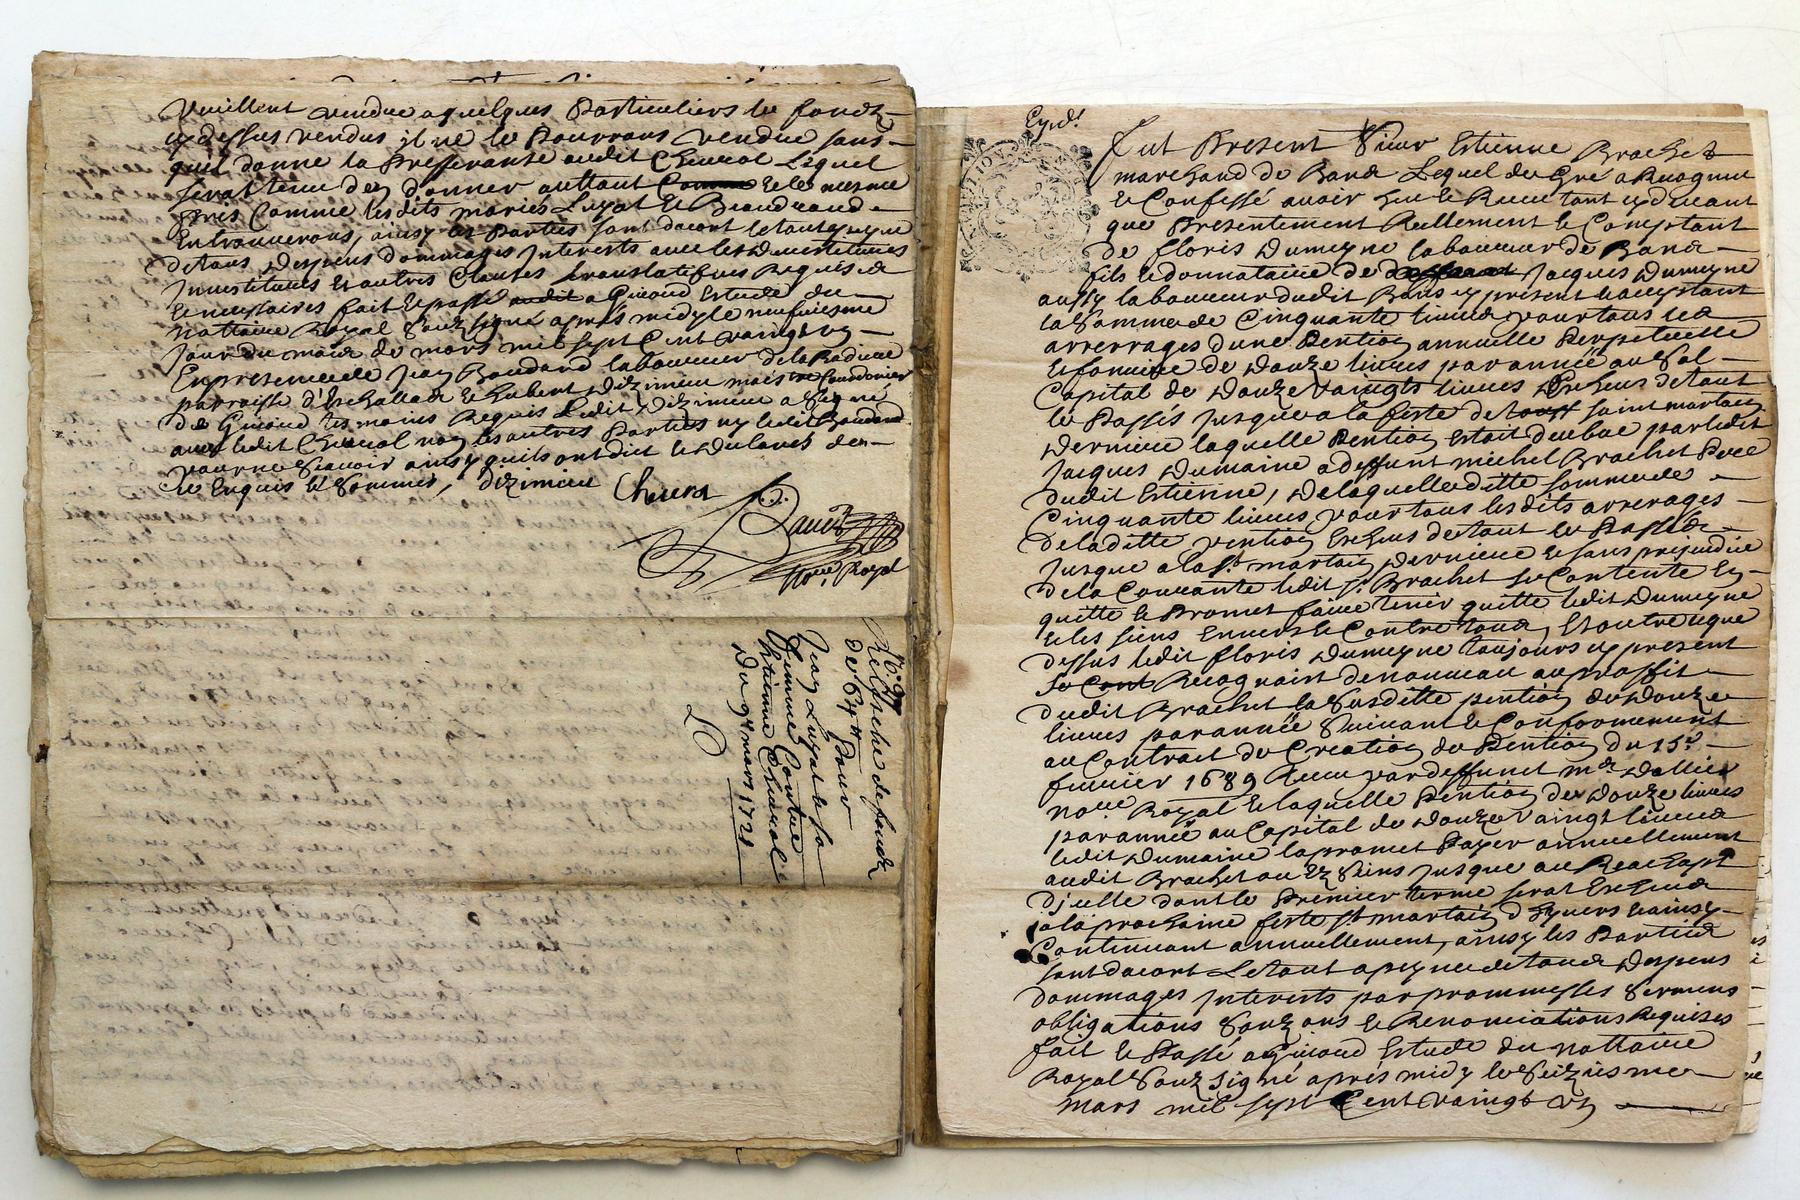 Veuillent vendre a quelques Particuliers le fondz
cy dessus vendus il ne le Pourrons vendre sans
quil donne la Prefferanse audit Cheucol Lequel
serat tenu dey donner auttant et le mesme
pris Comme lesdits mariés Luyat et
En trouuerons, ainsy les Parties sont dacort le tout a peyne
de tous despens dommages Interests auec les deuestitures
Inuestitures et autres Clauses translatifues Requises
et necessaires fait et passé a Giuord Estude du
nottaire Royal souz signé apres midy le neufuiesme
jour du mois de mars mil sept Cent vaingt vn
En presence de Jean Boudard laboureur de la Rodiere
parroisse d'Eschallad et hubert dizimieu maistre Courdonier
de Giuord tesmoins Requis Ledit dizimieu a signé
auec ledit non les autres Parties ny ledit Boudard
pour ne Scauoir ainsy quils ont dict et declarés de
ce Enquis et Sommés, dizimieu
nore Royal
No. 97
Relasche de fondz
de 64 tt Pour
Jean Luyat et sa
femme Contre
Estienne
Du 9e mars 1721
Fut Present Sieur Estienne Brachet
marchand de Banz Lequel de Gré a Recogneu
et Confessé auoir heu et Receu tant cy deuant
que Presentement Reellement et Comptant
de floris Dumeyne laboureur de Banz
fils et donnataire de Jacques Dumeyne
aussy laboureur dudit Bans cy present et acceptant
la Somme de Cinquante liures pour tous les
arrerrages dune Pention annuelle Perpetuelle
et fonciere de Douze liures par année au Sol
Capital de Douze vaingts liures Escheus de tout
le Passés Jusques a la feste de saint martain
derniere laquelle Pention Estoit deube par ledit
Jacques Dumaine a deffunt michel Brachet Pere
dudit Estienne, de laquelle ditte somme de
Cinquante liures pour tous lesdits arrerages
de la ditte pention Escheus de tout le Passé
Jusque a la St. martain derniere et sans prejudice
de la Courante ledit Sr. Brachet se Contente En
quitte et Promet faire tenir quitte ledit Dumeyne
et les siens Enuers et Contre tous, Et outre ce que
dessus ledit floris Dumeyne toujours cy present
Recognoit de nouueau au proffit
dudit Brachet la Susditte pention de Douze
liures par année Suiuant et Conformement
au Contract de Creation de Pention du 15e
feurier 1689 Receu par deffunct me
nore Royal et laquelle Pention de Douze liures
par année au Capital de Douze vaingt liures
ledit Dumaine la promet Payer annuellement
audit Brachet ou es Siens Jusque au Reachapt
dicelle dont le Premier terme serat Escheus
a la prochaine feste st martain dhyuers et ainsy
Continuant annuellement, ainsy les Parties
sont dacort Le tout a peyne de tous Despens
dommages Interests par prommesses Sermens
obligations Souzmissions et Renonciations Requises
fait et Passé a Giuord Estude du nottaire
Royal Souz Signé apres midy le Seiziesme
mars mil sept Cent vaingt vn